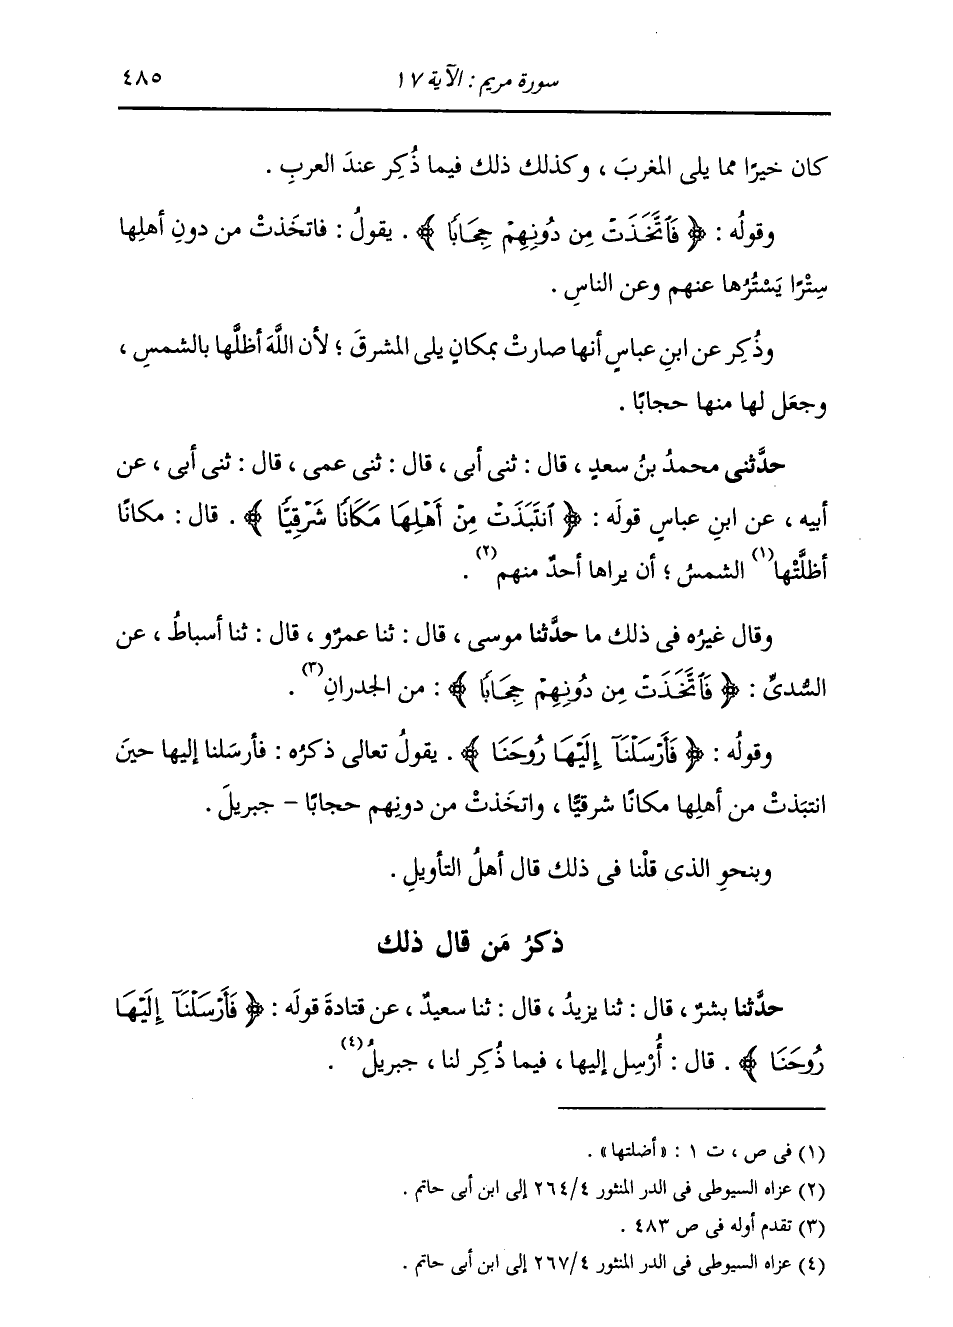 سورة مريم : الآية ١٧
٤٨٥
كان خيرًا مما يلى المغربَ ، وكذلك ذلك فيما ذُكِر عندَ العربِ .
وقولُه : ﴿ فَٱتَّخَذَتْ مِن دُونِهِمْ حِجَابًا ﴾ . يقولُ : فاتخَذتْ من دونِ أهلِها
سِتْرًا يَسْتُرُها عنهم وعن الناسِ .
وذُكِر عن ابنِ عباسٍ أنها صارتْ بمكانٍ يلى المشرقَ ؛ لأن اللَّهَ أظلَّها بالشمسِ ،
وجعَل لها منها حجابًا .
حدَّثنى محمدُ بنُ سعدٍ ، قال : ثنى أبى ، قال : ثنى عمى ، قال : ثنى أبى ، عن
أبيه ، عن ابنِ عباسٍ قولَه : ﴿ ٱنتَبَذَتْ مِنْ أَهْلِهَا مَكَانًا شَرْقِيًّا ﴾ . قال : مكانًا
أظلَّتْها(١) الشمسُ ؛ أن يراها أحدٌ منهم(٢) .
وقال غيرُه فى ذلك ما حدَّثنا موسى ، قال : ثنا عمرٌو ، قال : ثنا أسباطُ ، عن
السُّدىِّ : ﴿ فَٱتَّخَذَتْ مِن دُونِهِمْ حِجَابًا ﴾ : من الجدرانِ(٣) .
وقولُه : ﴿ فَأَرْسَلْنَآ إِلَيْهَا رُوحَنَا ﴾ . يقولُ تعالى ذكرُه : فأرسَلنا إليها حينَ
انتبَذتْ من أهلِها مكانًا شرقيًّا ، واتخَذتْ من دونِهم حجابًا - جبريلَ .
وبنحوِ الذى قلْنا فى ذلك قال أهلُ التأويلِ .
ذكرُ مَن قال ذلك
حدَّثنا بشرٌ ، قال : ثنا يزيدُ ، قال : ثنا سعيدٌ ، عن قتادةَ قولَه : ﴿ فَأَرْسَلْنَآ إِلَيْهَا
رُوحَنَا ﴾ . قال : أُرْسِل إليها ، فيما ذُكِر لنا ، جبريلُ(٤) .
(١) فى ص ، ت ١ : «أضلتها» .
(٢) عزاه السيوطى فى الدر المنثور ٢٦٤/٤ إلى ابن أبى حاتم .
(٣) تقدم أوله فى ص ٤٨٣ .
(٤) عزاه السيوطى فى الدر المنثور ٢٦٧/٤ إلى ابن أبى حاتم .